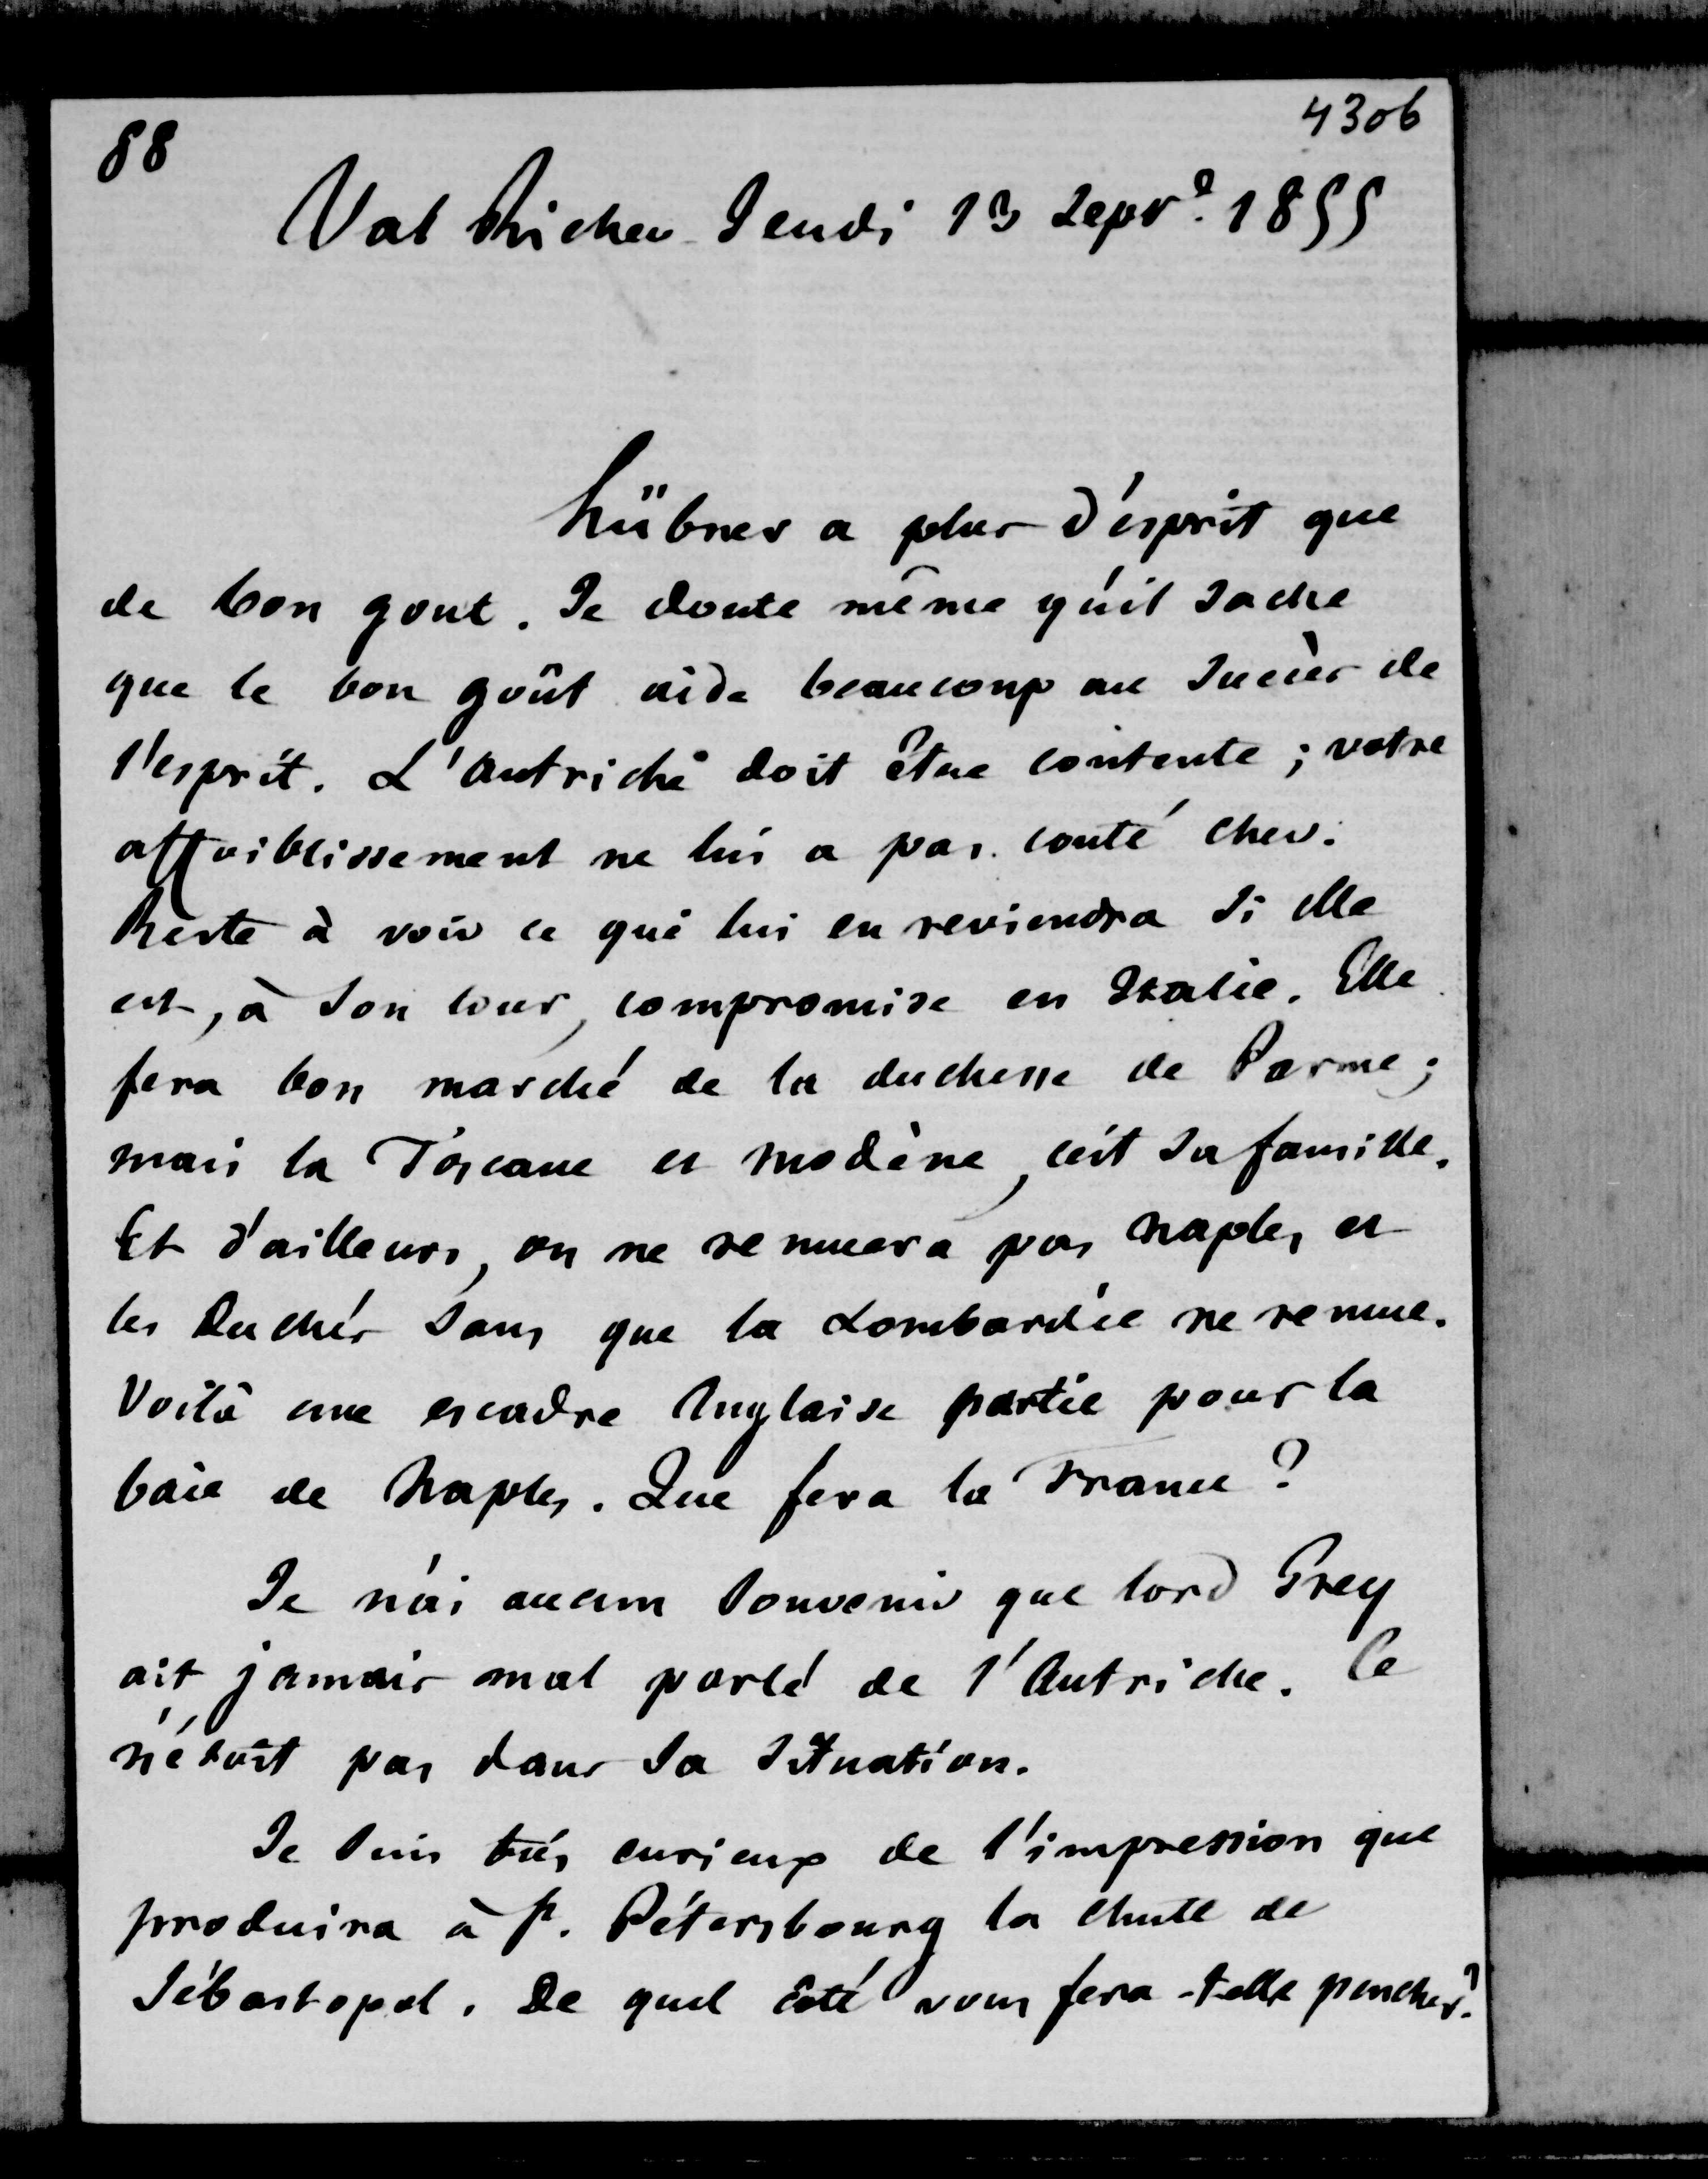 88
4306
Val Richer Jeudi 13 Sept. 1855
Hübner a plus d'esprit que
de bon gout. Je doute même qu'il sache
que le bon goût aide beaucoup au succès de
l'esprit. L'Autriche doit être contente ; votre
affaiblissement ne lui a pas couté cher.
Reste à voir ce qui lui en reviendra si elle
est, à son tour, compromise en Italie. Elle
fera bon marché de la duchesse de Parme ;
mais la Toscane et Modène, c'est sa famille.
Et d'ailleurs, on ne remuera pas Naples et
les Duchés sans que la Lombardie ne remue.
Voilà une escadre Anglaise partie pour la
baie de Naples. Que fera la France ?
Je n'ai aucun souvenir que lord Grey
ait jamais mal parlé de l'Autriche. Ce
n'étoit pas dans sa situation.
Je suis très curieux de l'impression que
produira à St. Pétersbourg la chute de
Sébastopol. De quel côté vous fera-t-elle pencher ?